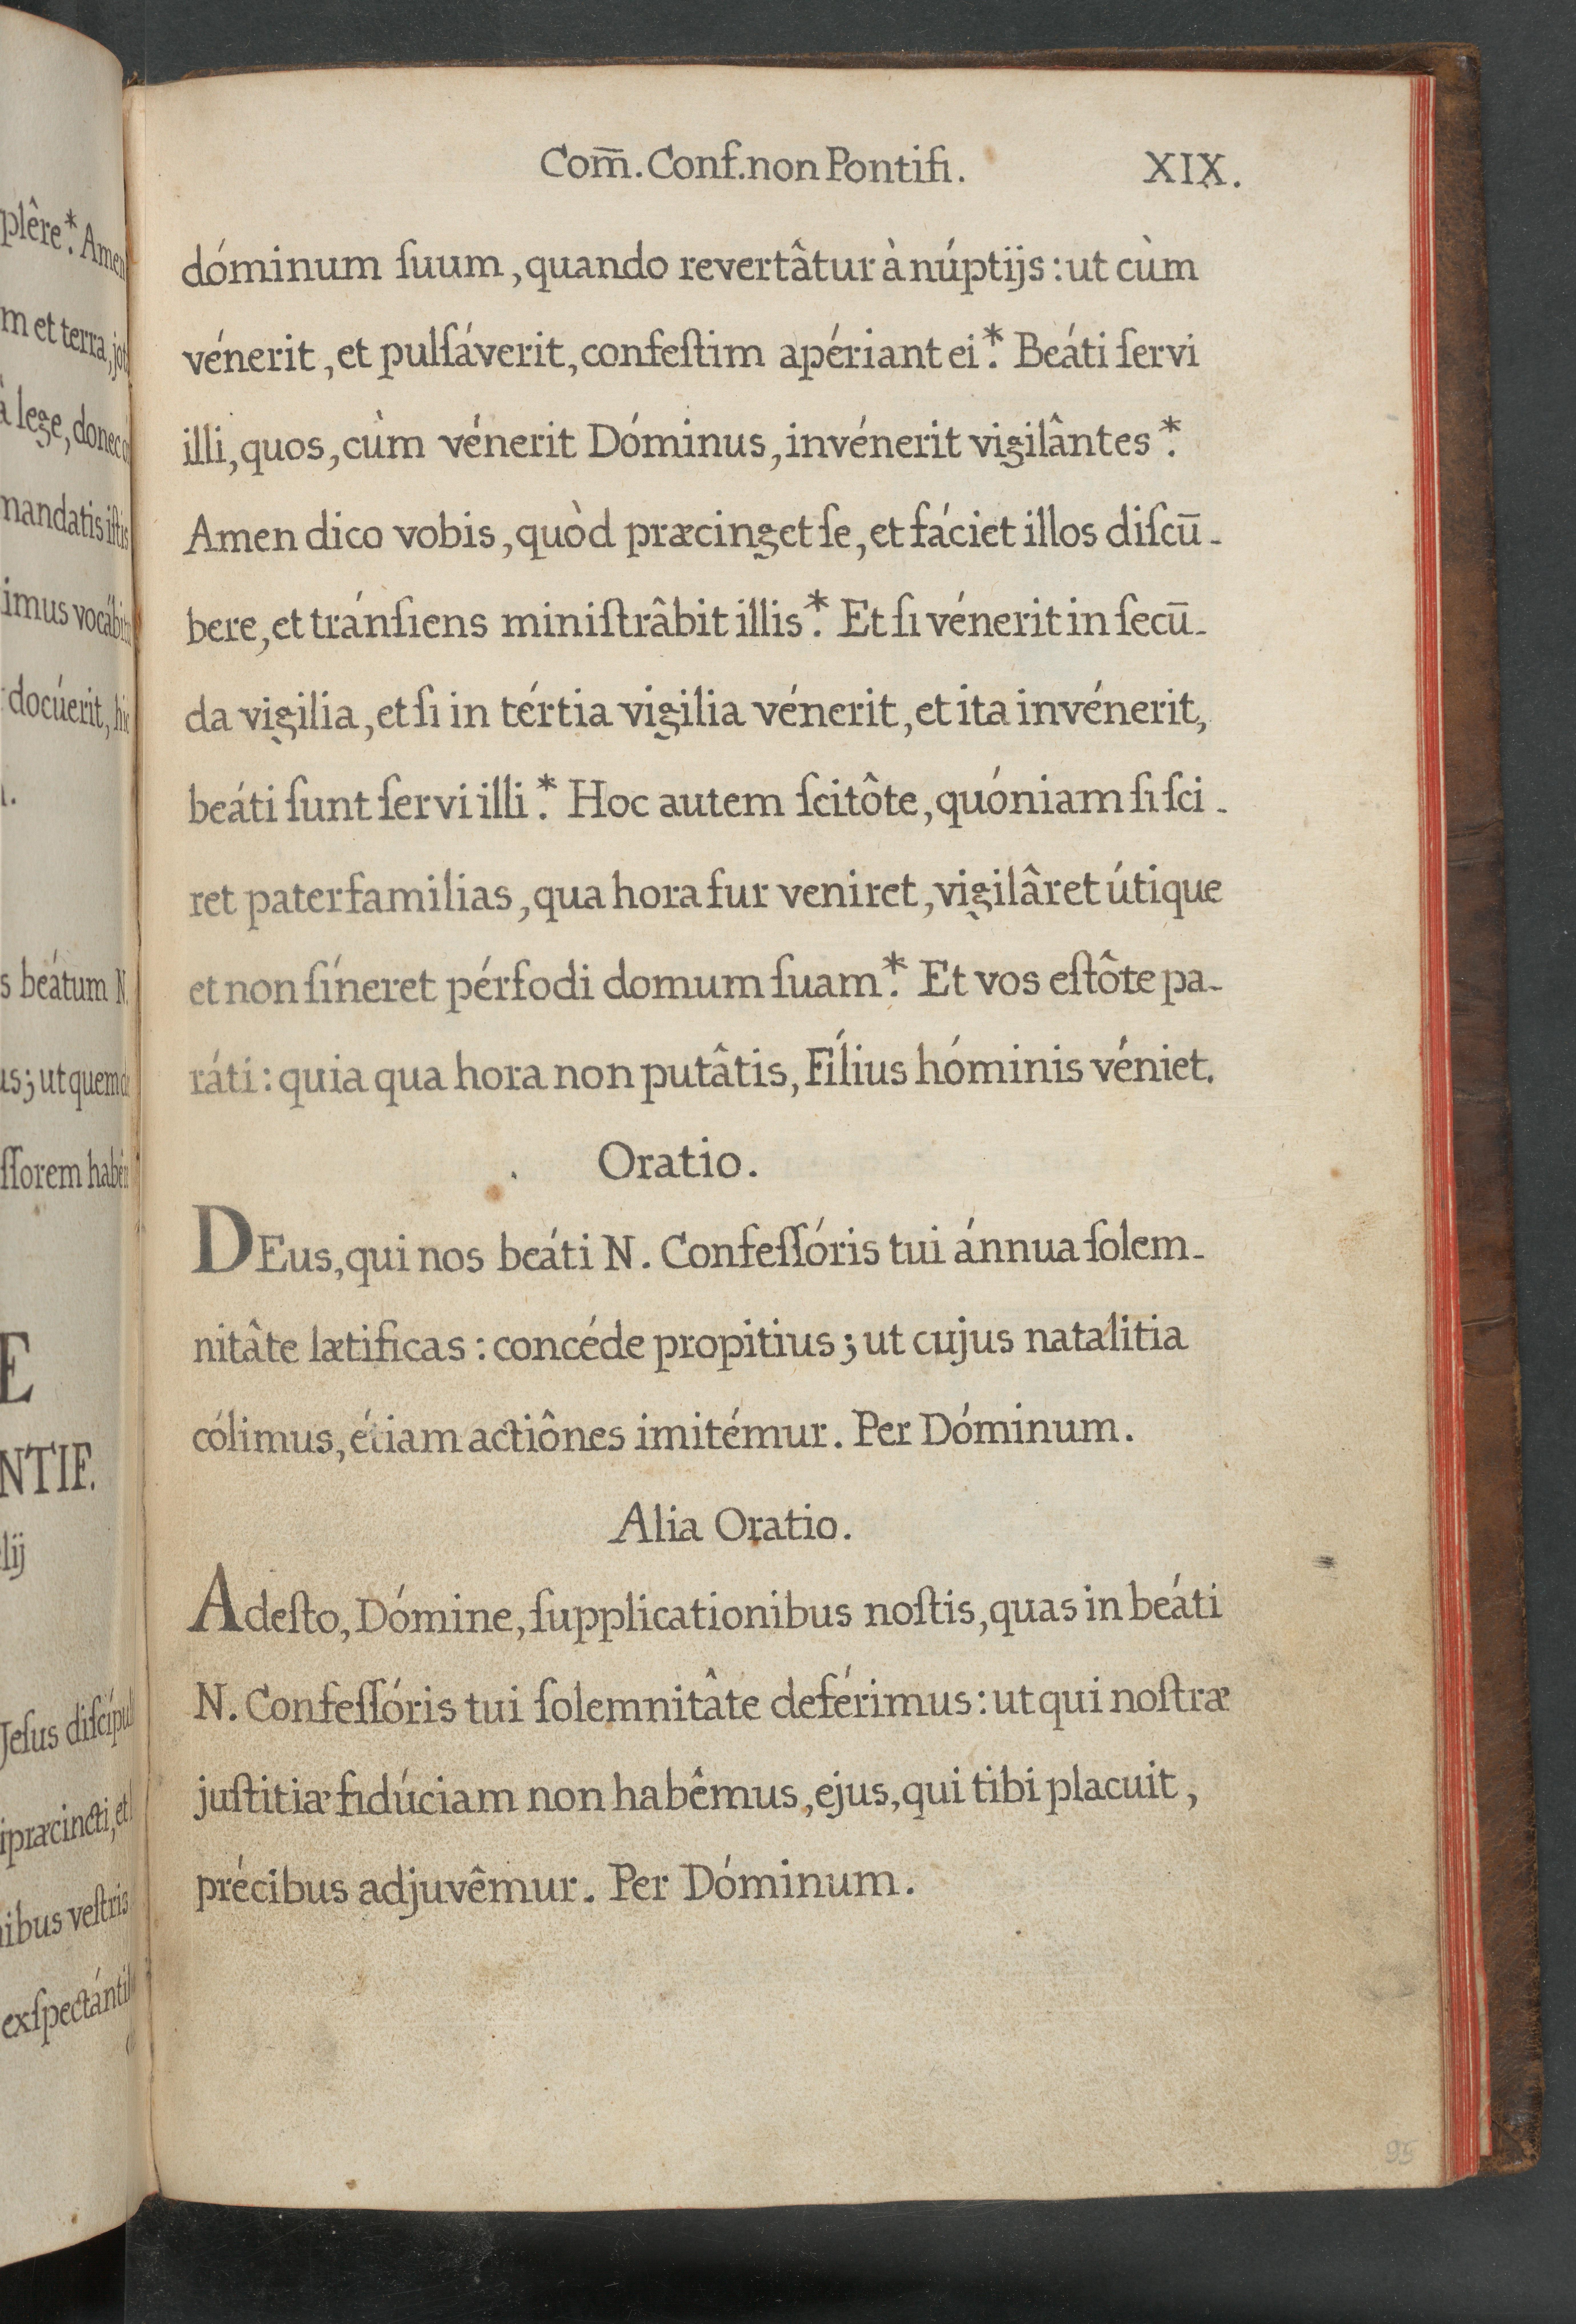 plêre*. Amen
m et terra, jot
à lege, donec o
mandatis iſtis
imus vocábit
docúerit, hic
s beátum N.
us; ut quem
ſſorem habé
E
NTIF.
lij
Jeſus diſcípul
præcincti, et
ibus veſtris
exſpectánti
Com̄. Conf. non Pontifi. XIX.
dóminum ſuum, quando revertâtur à núptijs: ut cùm
vénerit, et pulſáverit, confeſtim apériant ei*. Beáti ſervi
illi, quos, cùm vénerit Dóminus, invénerit vigilântes*.
Amen dico vobis, quòd præcinget ſe, et fáciet illos diſcū-
bere, et tránſiens miniſtrâbit illis*. Et ſi vénerit in ſecū-
da vigilia, et ſi in tértia vigilia vénerit, et ita invénerit,
beáti ſunt ſervi illi*. Hoc autem ſcitôte, quóniam ſi ſci-
ret paterfamilias, qua hora fur veniret, vigilâret útique
et non ſíneret pérfodi domum ſuam*. Et vos eſtôte pa-
ráti: quia qua hora non putâtis, Fílius hóminis véniet.
Oratio.
DEus, qui nos beáti N. Confeſſóris tui ánnua ſolem-
nitâte lætificas: concéde propitius; ut cujus natalítia
cólimus, étiam actiônes imitémur. Per Dóminum.
Alia Oratio.
Adeſto, Dómine, ſupplicationibus noſtis, quas in beáti
N. Confeſſóris tui ſolemnitâte deférimus: ut qui noſtræ
juſtitiæ fidúciam non habêmus, ejus, qui tibi placuit,
précibus adjuvêmur. Per Dóminum.
95